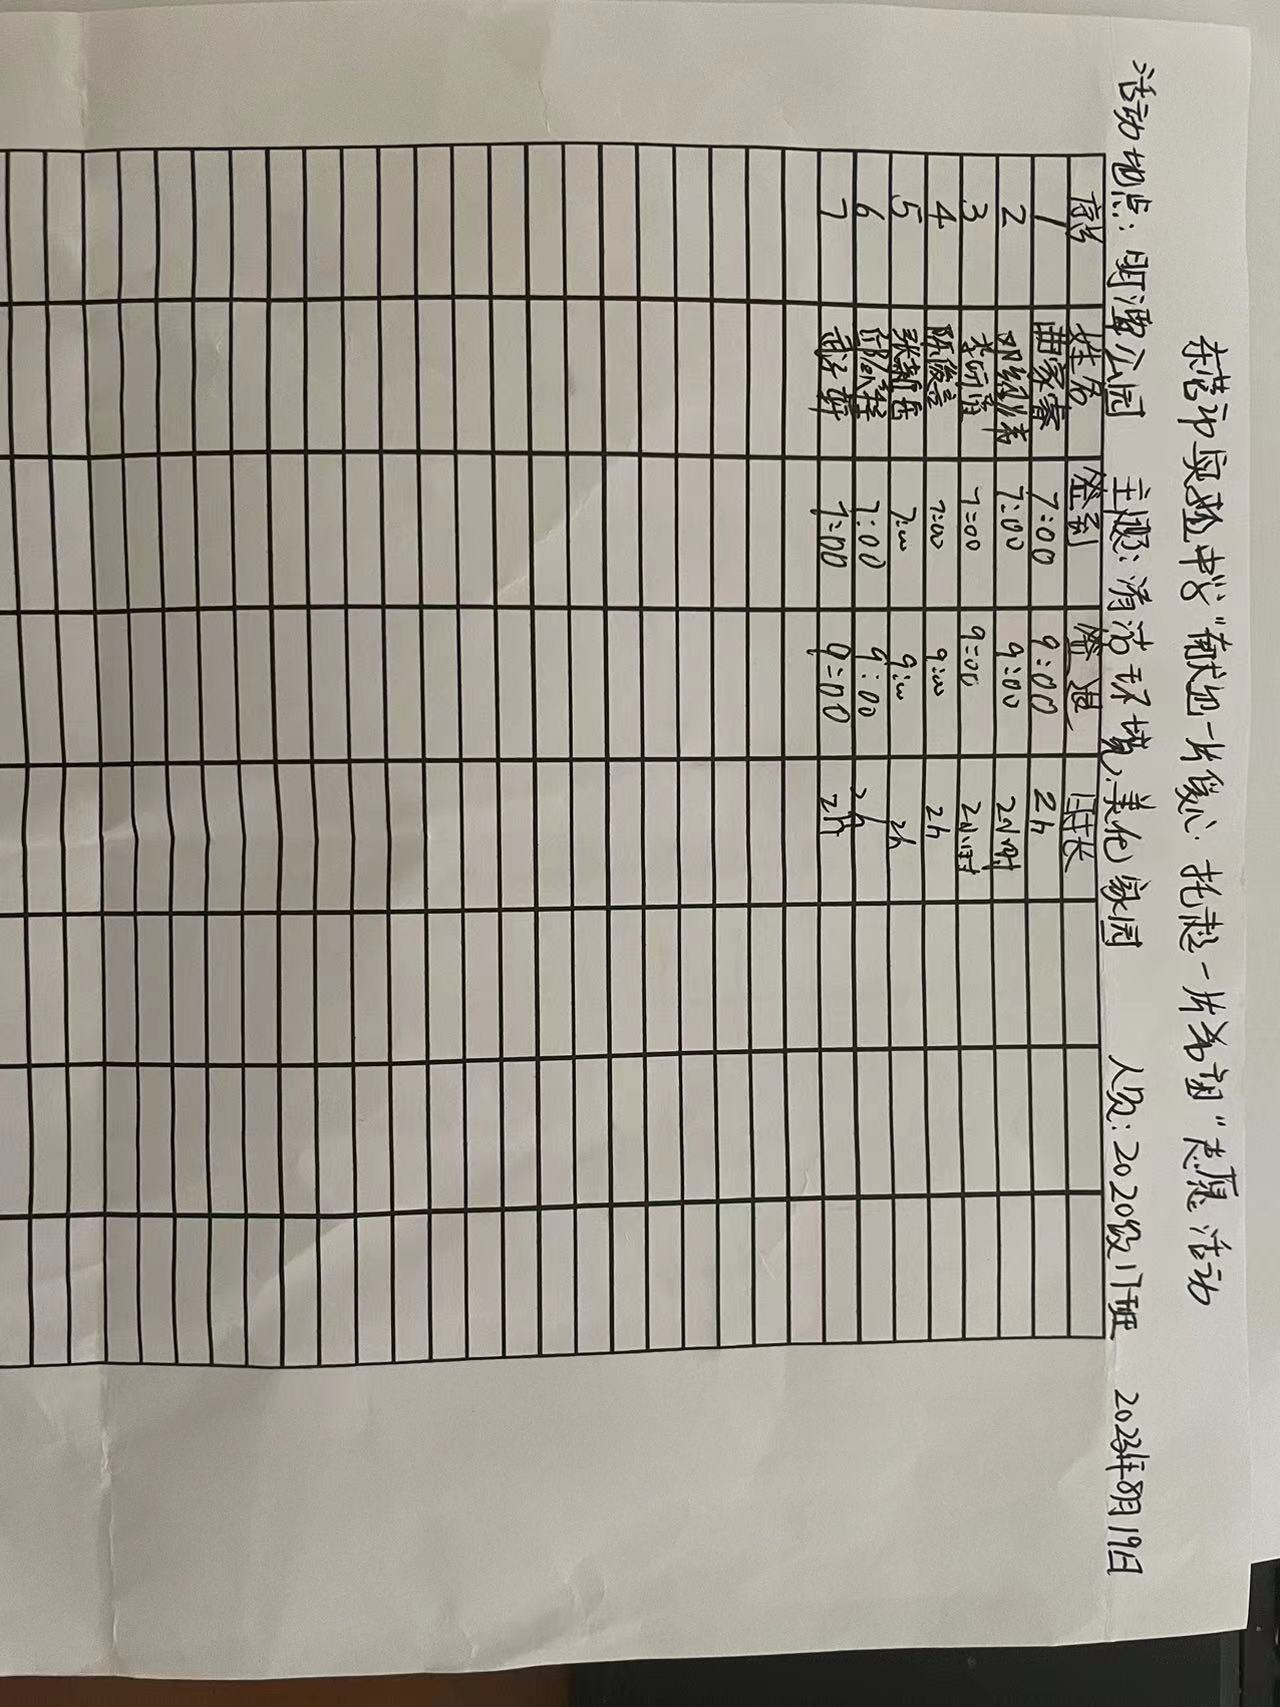 东营市实验中学"献出一片爱心 托起一片希望"志愿活动
活动地点:明潭公园 主题:清洁环境,美化家园 人员:2020级17班 2023年8月19日
序号 姓名 签到 签退 时长
1 曲家睿 7:00 9:00 2h
2 7:00 9:00 2小时
3 7:00 9:00 2小时
4 陈俊言 7:00 9:00 2h
5 张新岳 7:00 9:00 2h
6 7:00 9:00 2h
7 武子妍 7:00 9:00 2h